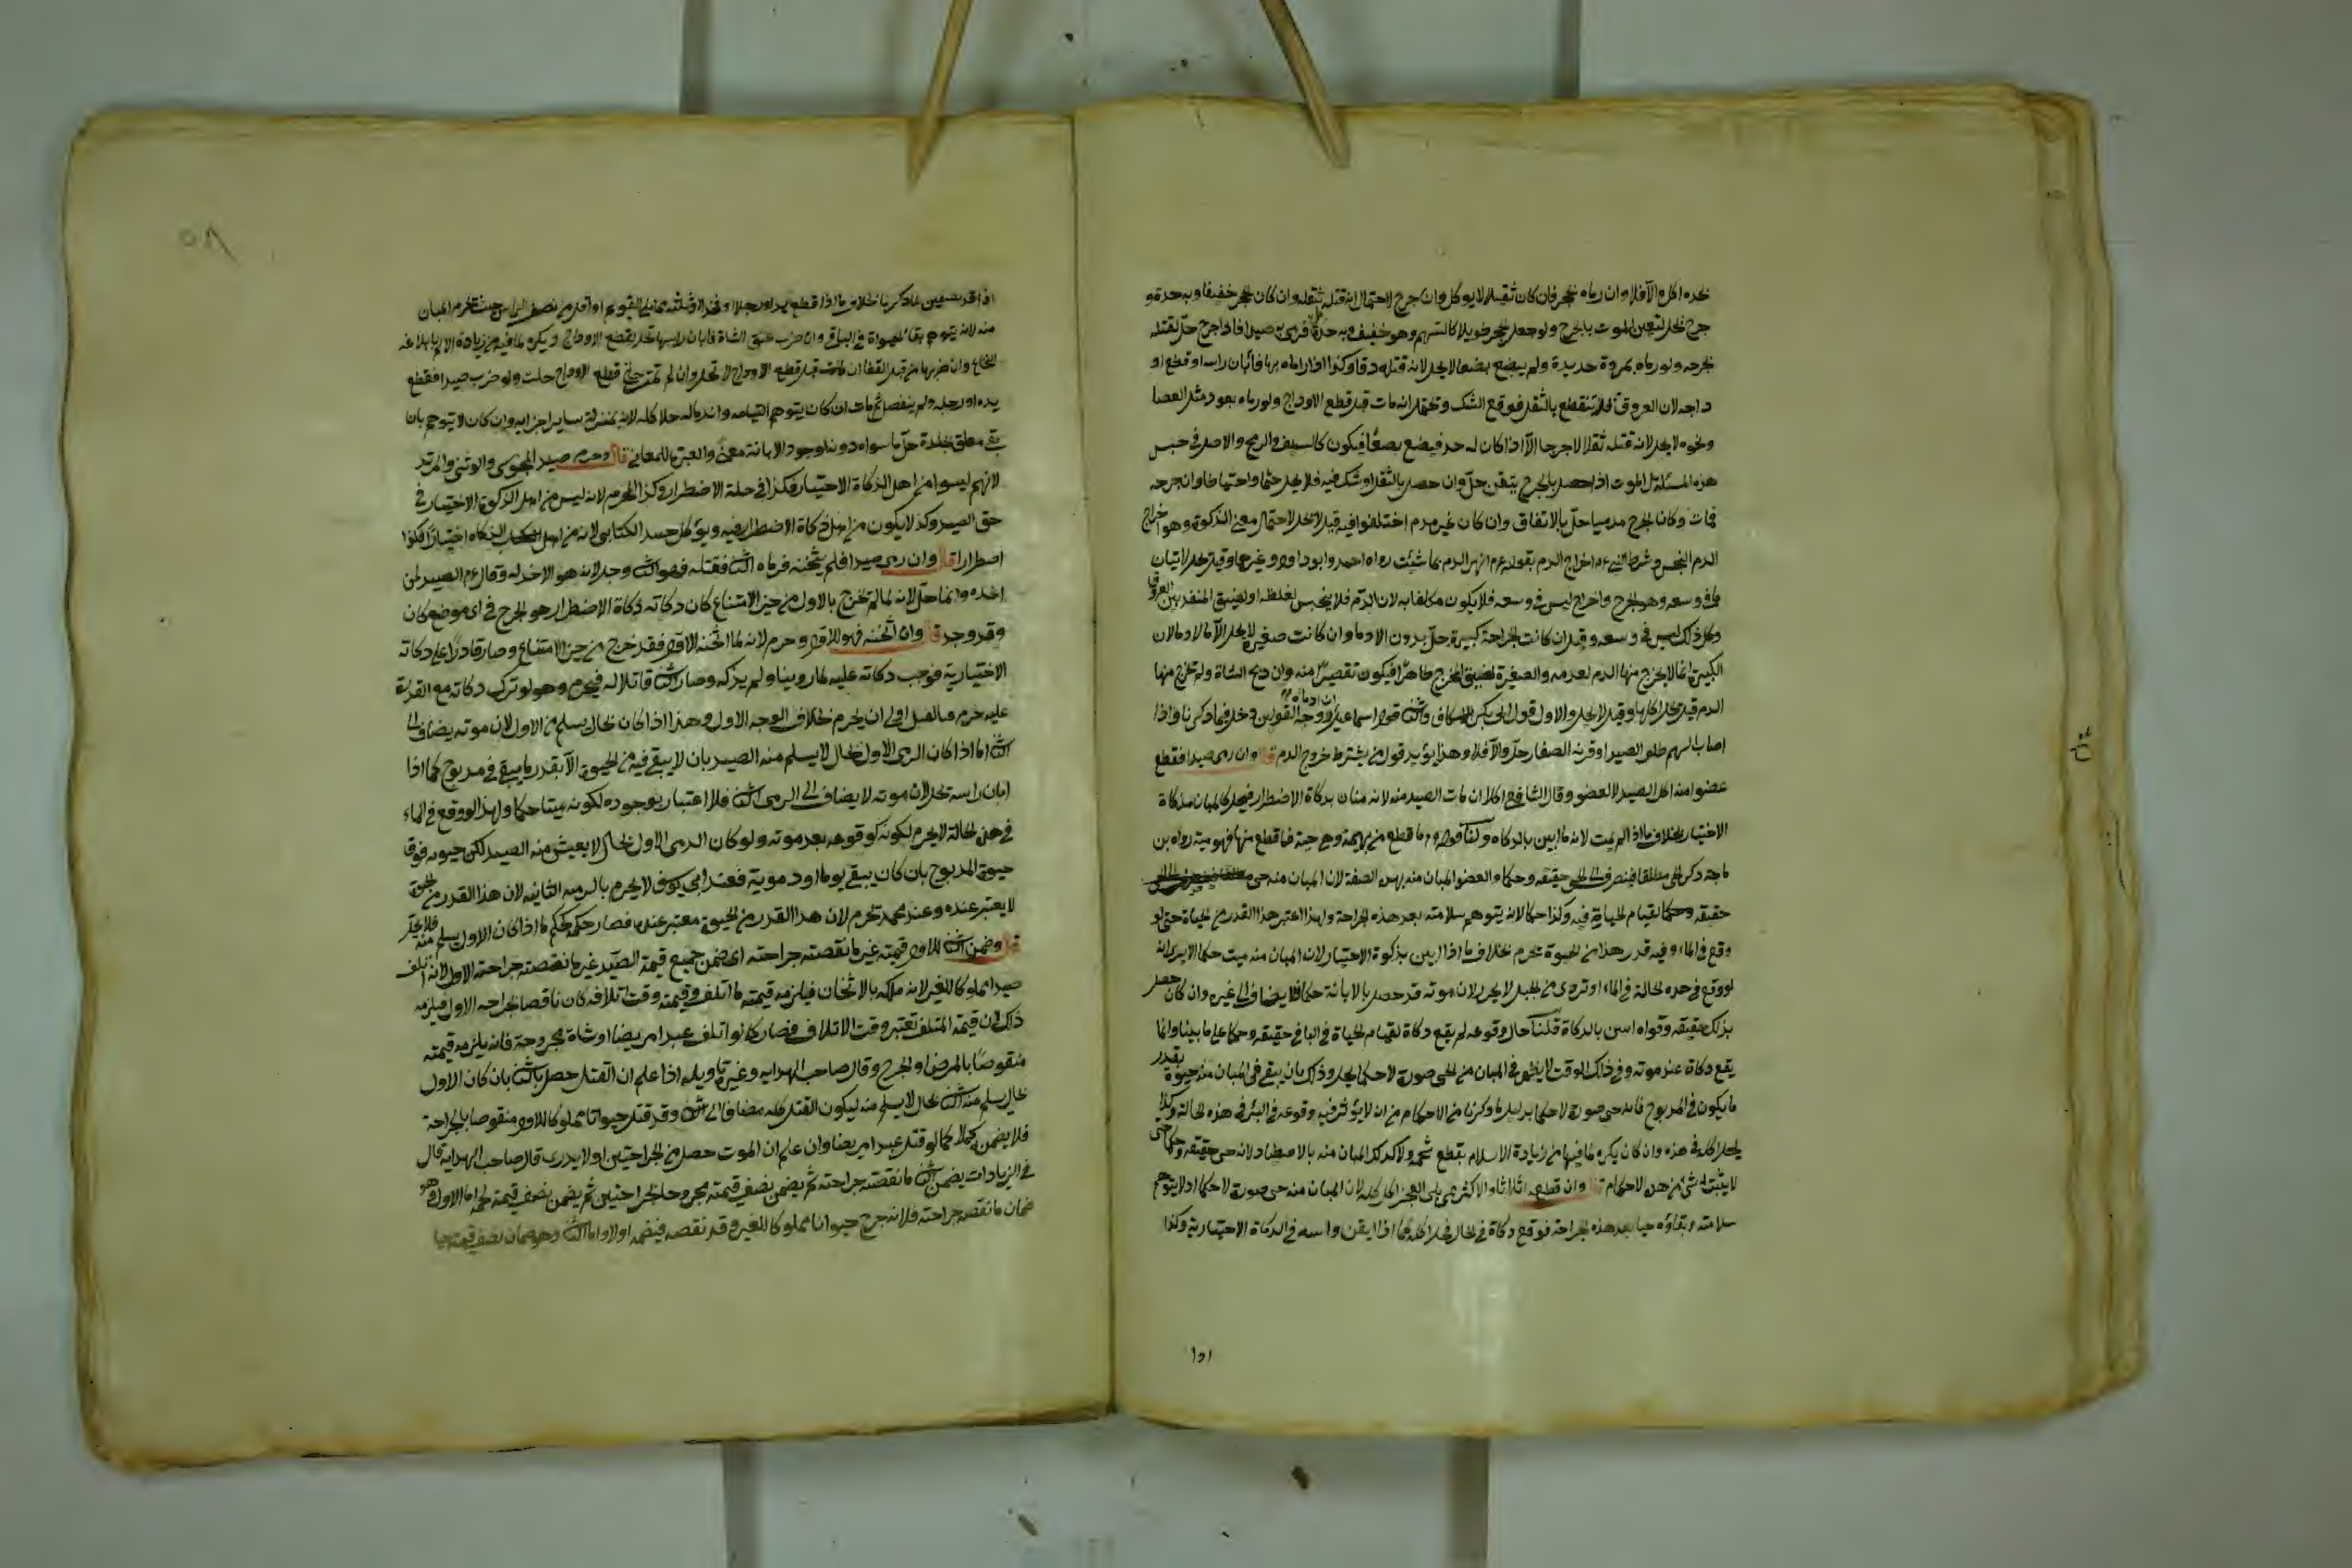 بحده اكل والا فلا وان رماه بحجر فان كان ثقيلا لا يوكل وان جرح لاحتمال انه قتله بثقله وان كان الحجر خفيفا وبه حدة و
جرح يحل لتعين الموت بالجرح ولو جعل الحجر طويلا كالسهم وهو خفيف وبه حدة فرمى به صيدا فاذا جرح حل لقتله
بجرحه ولو رماه بمروة حديدة ولم يبضع بضعا لا يحل لانه قتله دقا وكذا اذا رماه بها فابان راسه او قطع او
داجه لان العروق تنقطع بالثقل فوقع الشك ويحتمل انه مات قبل قطع الاوداج ولو رماه بعود مثل العصا
ونحوه لا يحل لانه قتله ثقلا لا جرحا الا اذا كان له حد فيضع بضعا فيكون كالسيف والرمح والاصل في جنس
هذه المسئلة ان الموت اذا حصل بالجرح بيقين حل وان حصل بالثقل او شك فيه فلا يحل حتما واحتياطا وان جرحه
فمات وكان الجرح مدميا حل بالاتفاق وان كان غير مدم اختلفوا فيه قيل لا يحل لاحتمال معنى الذكوة وهو اخراج
الدم النجس وشرط النبي عم اخراج الدم بقوله عم انهر الدم بما شئت رواه احمد وابو داود وغيرهما وقيل يحل لاتيان
ما في وسعه وهو الجرح واخراج ليس في وسعه فلا يكون مكلفا به لان الدم قد يحبس لغلظه او لضيق المنفذ بين العروق
وكل ذلك ليس في وسعه وقيل ان كانت الجراحة كبيرة حل بدون الادما وان كانت صغيرة لا يحل الا بالادما لان
الكبيرة انما لا يخرج منها الدم لعدمه والصغيرة لضيق المخرج ظاهرا فيكون تقصيرا منه وان ذبح الشاة ولم يخرج منها
الدم قيل يحل اكلها وقيل لا يحل والاول قول ابي بكر الاسكاف والثاني قول اسماعيل ووجه القولين دخل فيما ذكرنا واذا
اصاب السهم ظلف الصيد او قرنه الصفار حل والا فلا وهذا يؤيد قول من يشترط خروج الدم قال وان رمى صيدا فقطع
عضوا منه اكل الصيد لا العضو وقال الشافعي اكلا ان مات الصيد منه لانه مبان بذكاة الاضطرار فيحل كالمبان بذكاة
الاختيار بخلاف ما اذا لم يمت لانه ما ابين بالذكاه ولنا قوله عم ما قطع من بهيمة وهي حية فما قطع منها فهو ميتة رواه بن
ماجة ذكر الحي مطلقا فينصرف الى الحي حقيقه وحكما والعضو المبان منه بهذه الصفة لان المبان منه حي
حقيقه وحكما لقيام الحياة فيه وكذا حكما لانه يتوهم سلامته بعد هذه الجراحة ولهذا اعتبر هذا القدر من الحياة حتى لو
وقع في الماء وفيه قدر هذا من الحيوة يحرم بخلاف ما اذا ابين بذكوة الاختيار لان المبان منه ميت حكما الا يرى انه
لو وقع في هذه الحالة في الماء او تردى من الجبل لا يحرم لان موته قد حصل بالابانة حكما فلا يضاف الى غيره وان كان حصل
بذلك حقيقه وقوله ابين بالذكاة قلنا حال وقوعه لم يقع ذكاة لقيام الحياة في الباقي حقيقه وحكما على ما بينا وانما
يقع ذكاة عند موته وفي ذلك الوقت لا يظهر في المبان من الحي صورة لا حكما يحل وذلك بان يبقى في المبان منه حيوة بقدر
ما يكون في المذبوح فانه حي صورة لا حكما بدليل ما ذكرنا من الاحكام من ان لا يؤثر فيه وقوعه في البئر في هذه الحالة وكذا
يحل اكله في هذه وان كان يكره لما فيها من زيادة الايلام بقطع لحمه ولا كذلك المبان منه بالاصطياد لانه حي حقيقه وحكما حتى
لا يثبت له شئ من هذه الاحكام قال وان قطعه اثلاثا والاكثر مما يلي العجز اكل كله لان المبان منه حي صورة لا حكما اذ لا يتوهم
سلامته وبقاؤه حيا بعد هذه الجراحة فوقع ذكاة في الحال فحل اكله كما اذا ابين راسه في الذكاة الاختيارية وكذا
١٥١
٥٨
اذا قده نصفين لما ذكرنا بخلاف ما اذا قطع يدا او رجلا او فخذا او ثلثه مما يلي القوائم او اقل من نصف الراس حيث يحرم المبان
منه لانه يتوهم بقاء الحيوة في الباقي وان ضرب عنق الشاة فابان راسها تحل لقطع الاوداج ويكره لما فيه من زيادة الالم بابلاغه
النخاع وان ضربها من قبل القفا ان ماتت قبل قطع الاوداج لا تحل وان لم تمت حتى قطع الاوداج حلت ولو ضرب صيدا فقطع
يده او رجله ولم ينفصل ثم مات ان كان يتوهم التيامه واندماله حل اكله لانه بمنزلة ساير اجزايه وان كان لا يتوهم بان
بقي معلق بجلدة حل ما سواه دونه لوجود الابانة معنى والعبرة للمعاني قال وحرم صيد المجوسي والوثني والمرتد
لانهم ليسوا من اهل الذكاة الاختيار فكذا في حلة الاضطرار وكذا المحرم لانه ليس من اهل الذكوة الاختيار في
حق الصيد وكذا لا يكون من اهل ذكاة الاضطرار فيه ويؤكل صيد الكتابي لانه من اهل الذكاه اختيارا فكذا
اضطرارا قال وان رمى صيدا فلم يثخنه فرماه الثاني فقتله فهو للثاني وحل لانه هو الاخذ له وقال عم الصيد لمن
اخذه وانما حل لانه لما لم يخرج بالاول من حيز الامتناع كان ذكاته ذكاة الاضطرار وهو الجرح في اي موضع كان
وقد وجد قال وان اثخنه فهو للاول وحرم لانه لما اثخنه الاول فقد خرج من حيز الامتناع وصار قادرا على ذكاته
الاختيارية فوجب ذكاته عليه لما روينا ولم يذكه وصار الثاني قاتلا له فيحرم وهو لو ترك ذكاته مع القدرة
عليه حرم فبالقتل اولى ان يحرم بخلاف الوجه الاول وهذا اذا كان بحال يسلم من الاول لان موته يضاف الى
الثاني اما اذا كان الرمى الاول بحال لا يسلم منه الصيد بان لا يبقى فيه من الحيوة الا بقدر ما يبقى في مذبوح كما اذا
ابان راسه تحل لان موته لا يضاف الى الرمى الثاني فلا اعتبار بوجوده لكونه ميتا حكما ولهذا لو وقع في الماء
في هذه الحالة لا يحرم لكونه كوقوعه بعد موته ولو كان الرمى الاول بحال لا يعيش منه الصيد لكن حيوته فوق
حيوة المذبوح بان كان يبقى يوما او دونه فعند ابي يوسف لا يحرم بالرميه الثانيه لان هذا القدر من الحيوة
لا يعتبر عنده وعند محمد تحرم لان هذا القدر من الحيوة معتبر عنده فصار حكمه كحكم ما اذا كان الاول يسلم منه فلا يحل
قال وضمن الثاني للاول قيمته غير ما نقصته جراحته اي ضمن جميع قيمة الصيد غير ما نقصته جراحته الاول لانه اتلف
صيدا مملوكا للغير لانه ملكه بالاثخان فيلزمه قيمته ما اتلف وقيمته وقت اتلافه كان ناقصا بجراحه الاول فيلزمه
ذلك لان قيمة المتلف تعتبر وقت الاتلاف فصار كما لو اتلف عبدا مريضا او شاة مجروحة فانه يلزمه قيمته
منقوصا بالمرض او الجرح وقال صاحب الهدايه وغيره تاويله اذا علم ان القتل حصل بالثاني بان كان الاول
بحال يسلم منه والثاني بحال لا يسلم منه ليكون القتل كله مضافا الى الثاني وقد قتل حيوانا مملوكا للاول منقوصا بالجراحة
فلا يضمن كملا كما لو قتل عبدا مريضا وان علم ان الموت حصل من الجراحتين او لا يدرى قال صاحب الهدايه قال
في الزيادات يضمن الثاني ما نقصته جراحته ثم يضمن نصف قيمته مجروحا بجراحتين ثم يضمن نصف قيمته لحما اما الاول وهو
ضمان ما نقصته جراحته فلانه جرح حيوانا مملوكا للغير وقد نقصه فيضمنه اولا واما الثاني وهو ضمان نصف قيمته حيا